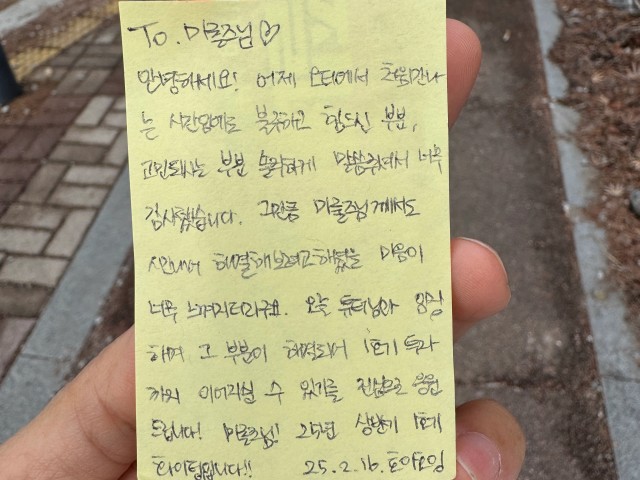 To. 미룰주님♡
안녕하세요! 어제 오티에서 처음만나
는 시간임에도 불구하고 힘드신 부분,
고민되시는 부분 솔직하게 말씀주셔서 너무
감사했습니다. 그만큼 미룰주님께서도
시간내서 해결해보려고 하셨을 마음이
너무 느껴지더라구요. 오늘 튜터님과 임장
하며 그 부분이 해결되어 1호기 투자
까지 이어지실 수 있기를 진심으로 응원
드립니다! 미룰주님! 25년 상반기 1호기
화이팅입니다!! 25.2.16.